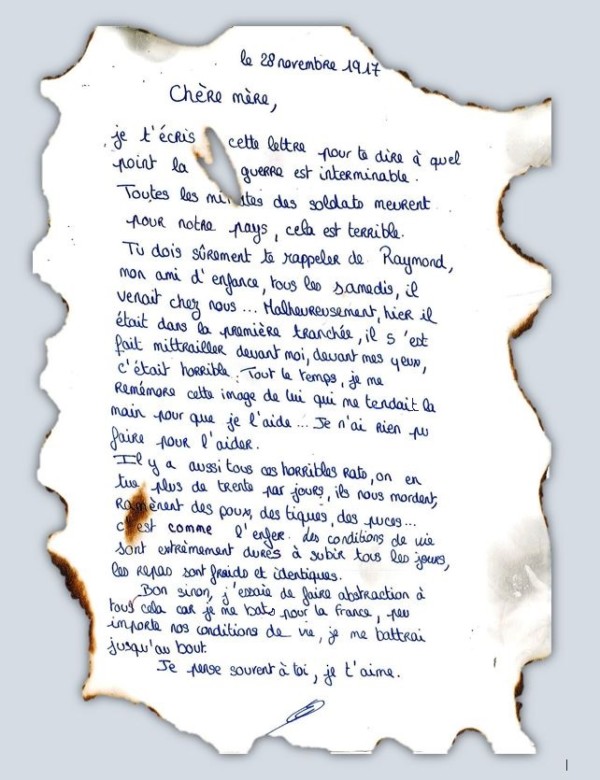 le 28 novembre 1917
Chère mère,
je t'écris cette lettre pour te dire à quel
point la guerre est interminable.
Toutes les minutes des soldats meurent
pour notre pays, cela est terrible.
Tu dois sûrement te rappeler de Raymond,
mon ami d'enfance, tous les samedis, il
venait chez nous... Malheureusement, hier il
était dans la première tranchée, il s'est
fait mittrailler devant moi, devant mes yeux,
c'était horrible. Tout le temps, je me
remémore cette image de lui qui me tendait la
main pour que je l'aide... Je n'ai rien pu
faire pour l'aider.
Il y a aussi tous ces horribles rats, on en
tue plus de trente par jours, ils nous mordent,
Ramènent des poux, des tiques, des puces...
c'est comme l'enfer. Les conditions de vie
sont extrêmement dures à subir tous les jours,
les repas sont froids et identiques.
Bon sinon, j'essaie de faire abstraction à
tous cela car je me bats pour la France, peu
importe nos conditions de vie, je me battrai
jusqu'au bout.
Je pense souvent à toi, je t'aime.